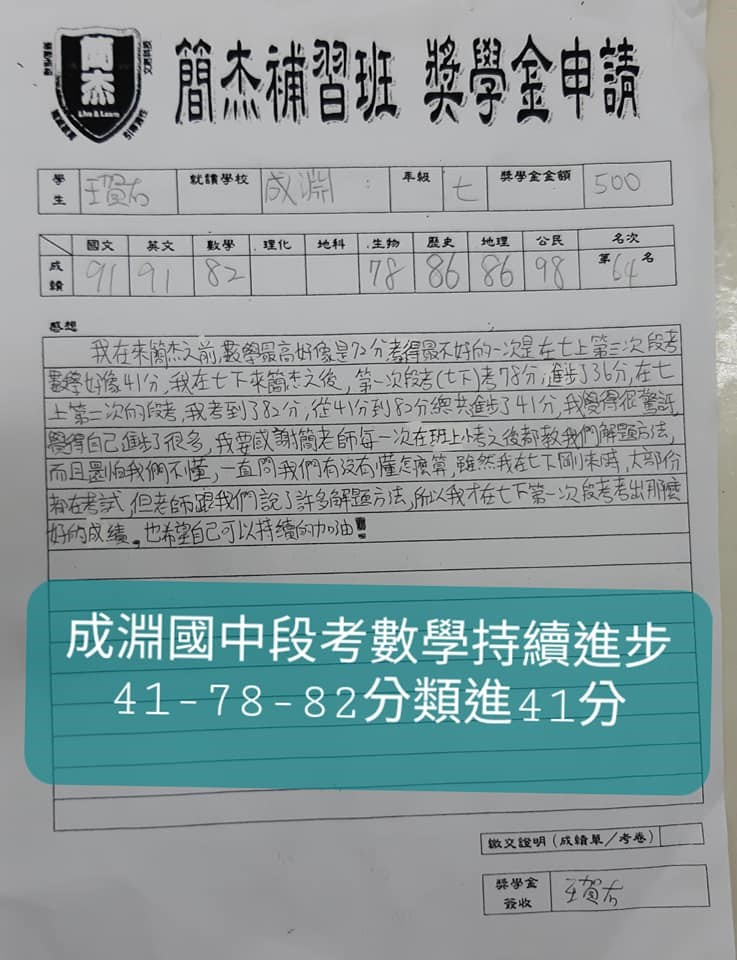 簡杰
Live & Learn
簡杰補習班 獎學金申請
學生 王賀右 就讀學校 成淵 年級 七 獎學金金額 500
國文 英文 數學 理化 地科 生物 歷史 地理 公民 名次
成績 91 91 82 78 86 86 98 第64名
感想
我在來簡杰之前,數學最高好像是72分考得最不好的一次是在七上第三次段考
數學好像41分,我在七下來簡杰之後,第一次段考(七下)考78分,進步了36分,在七
上第二次的段考,我考到了82分,從41分到82分總共進步了41分,我覺得很驚訝,
覺得自己進步了很多,我要感謝簡老師每一次在班上小考之後都教我們解題方法,
而且還怕我們不懂,一直問我們有沒有懂怎麼算,雖然我在七下剛來時,大部份
都在考試,但老師跟我們說了許多解題方法,所以我才在七下第一次段考考出那麼
好的成績。也希望自己可以持續的加油!
成淵國中段考數學持續進步
41-78-82分類進41分
繳交證明(成績單/考卷)
獎學金簽收 王賀右